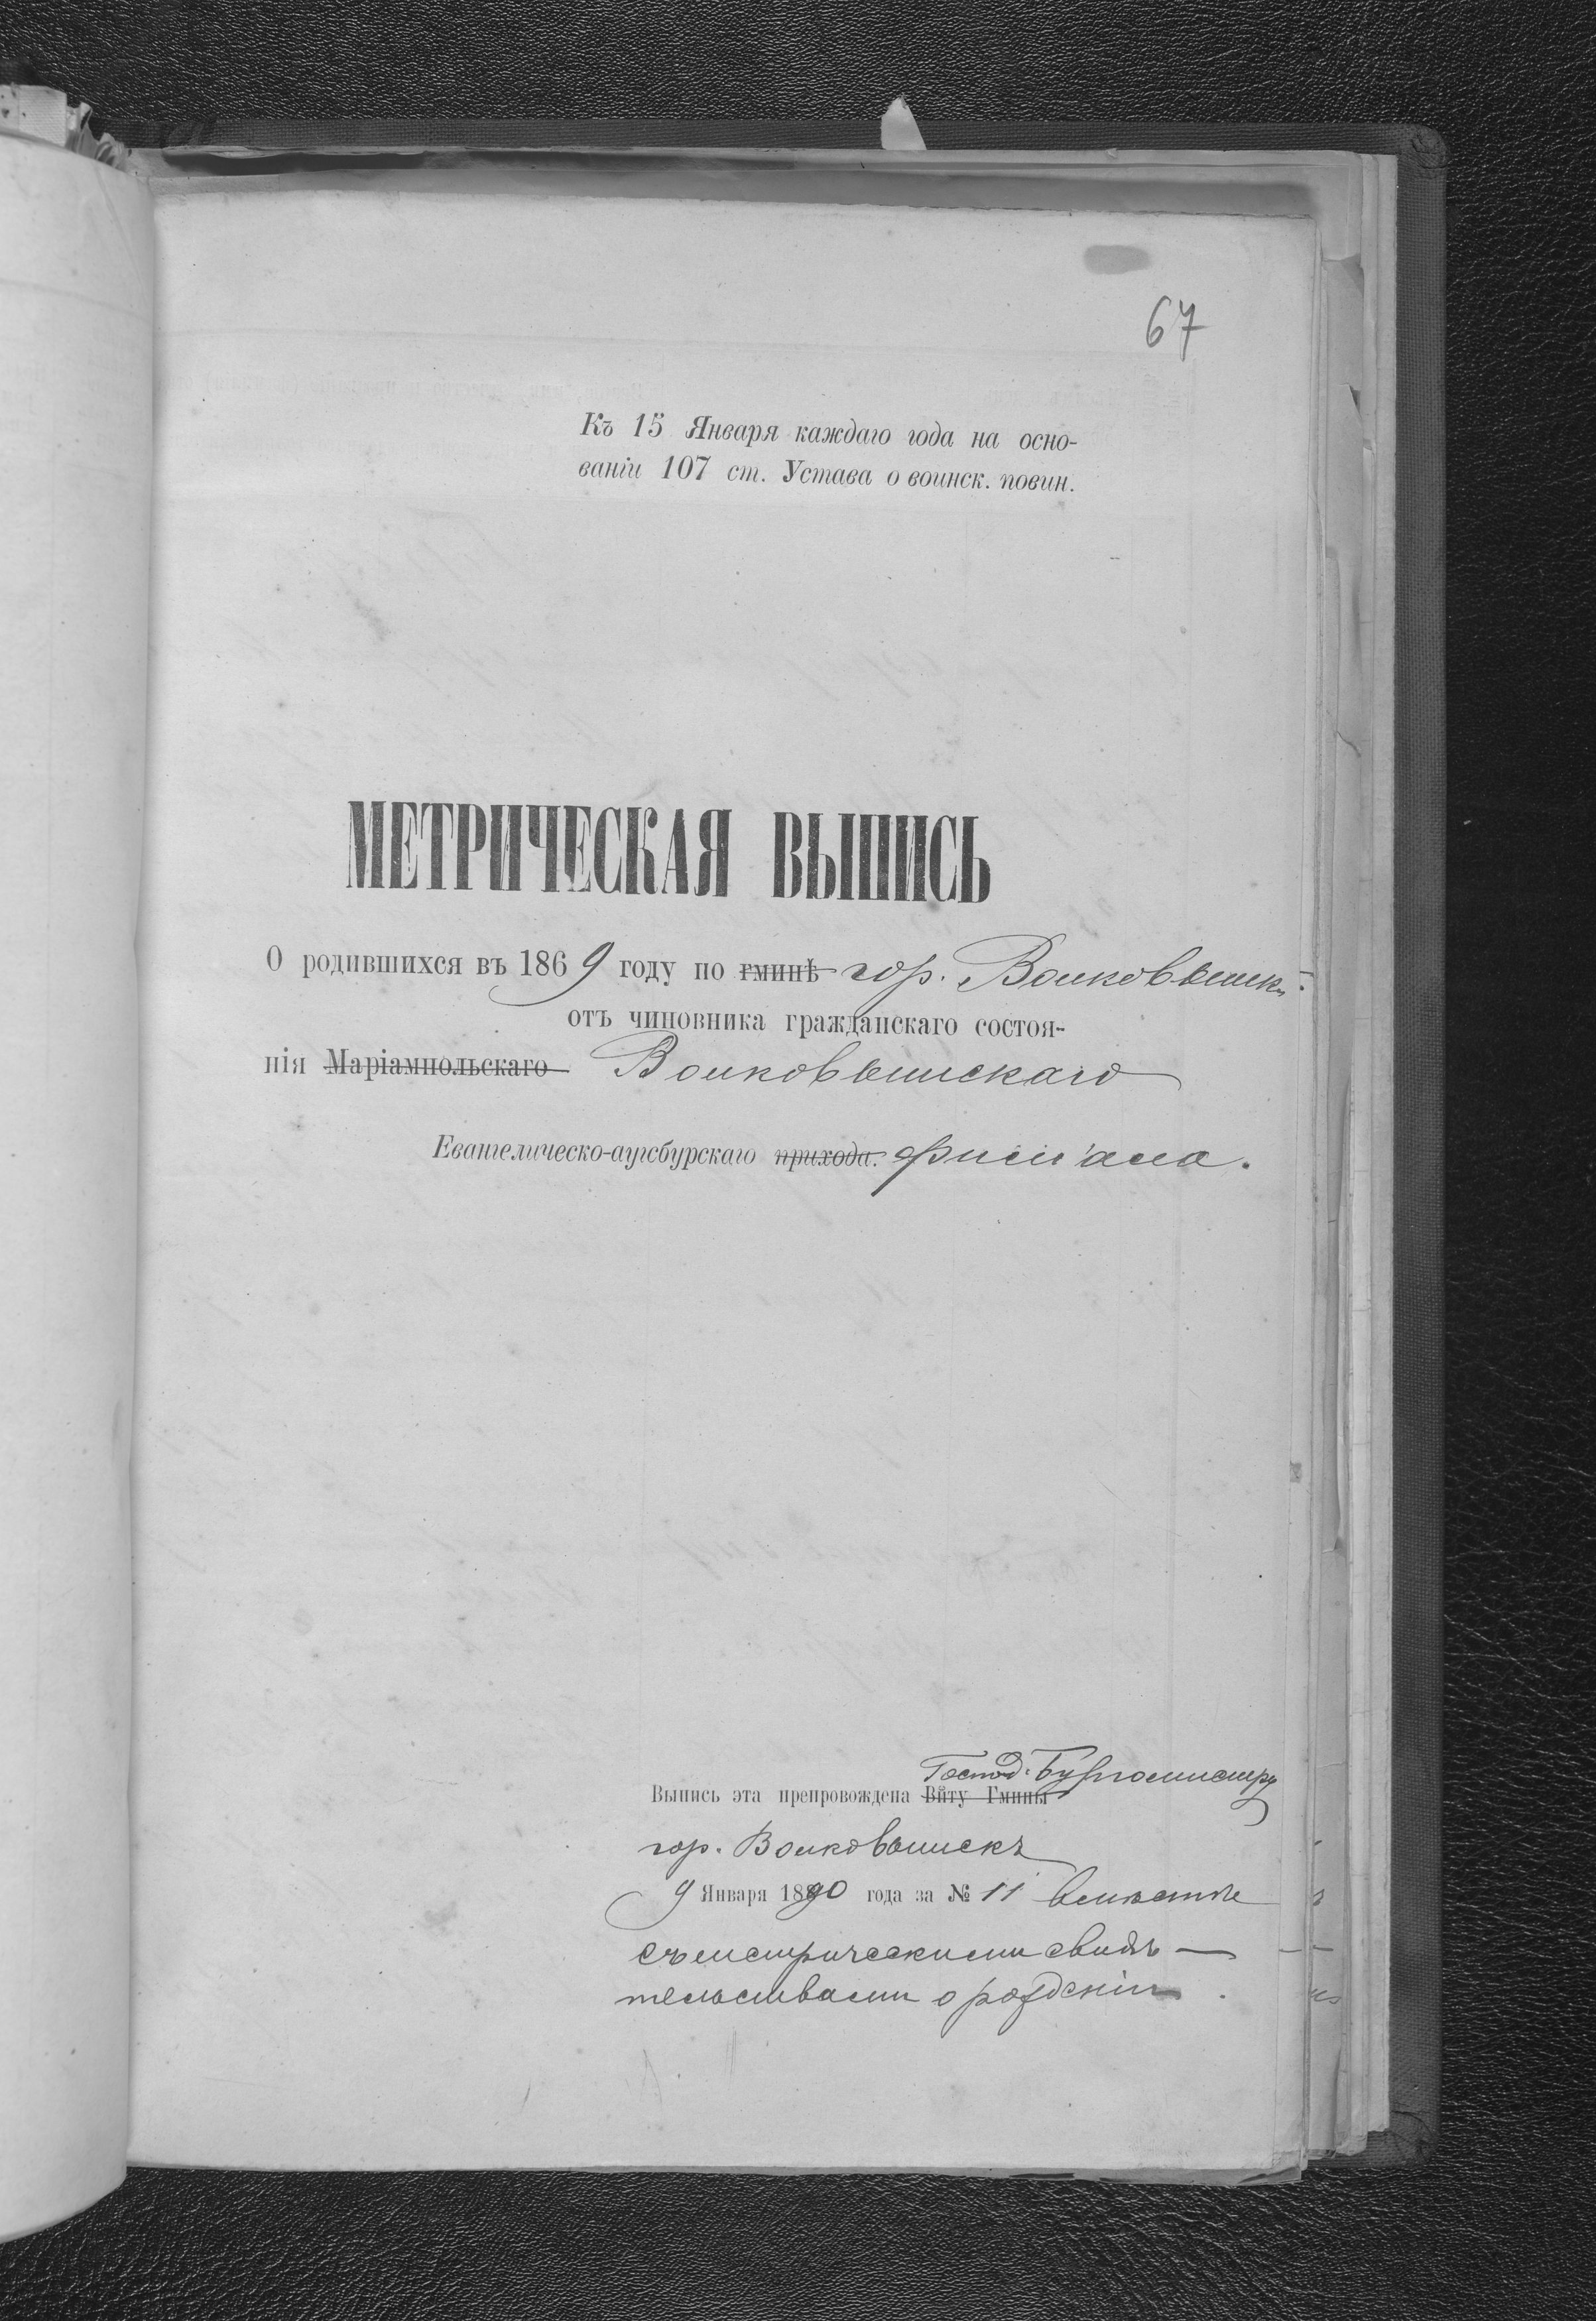 67
Къ 15 Января каждаго года на осно-
ваніи 107 ст. Устава о воинск. повин.
МЕТРИЧЕСКАЯ ВЫПИСЬ
О родившихся въ 1869 году по гминѣ гор. Волковышк.
отъ чиновника гражданскаго состоя-
нія Маріампольскаго Волковышскаго
Евангелическо-аугсбурскаго прихода. филіала.
Господ. Бургомистру
Выпись эта препровождена Вйту Гмины
гор. Волковышскъ
9 Января 1890 года за № 11 вмѣстѣ
съ метрическими свидѣ-
тельствами о рожденіи.